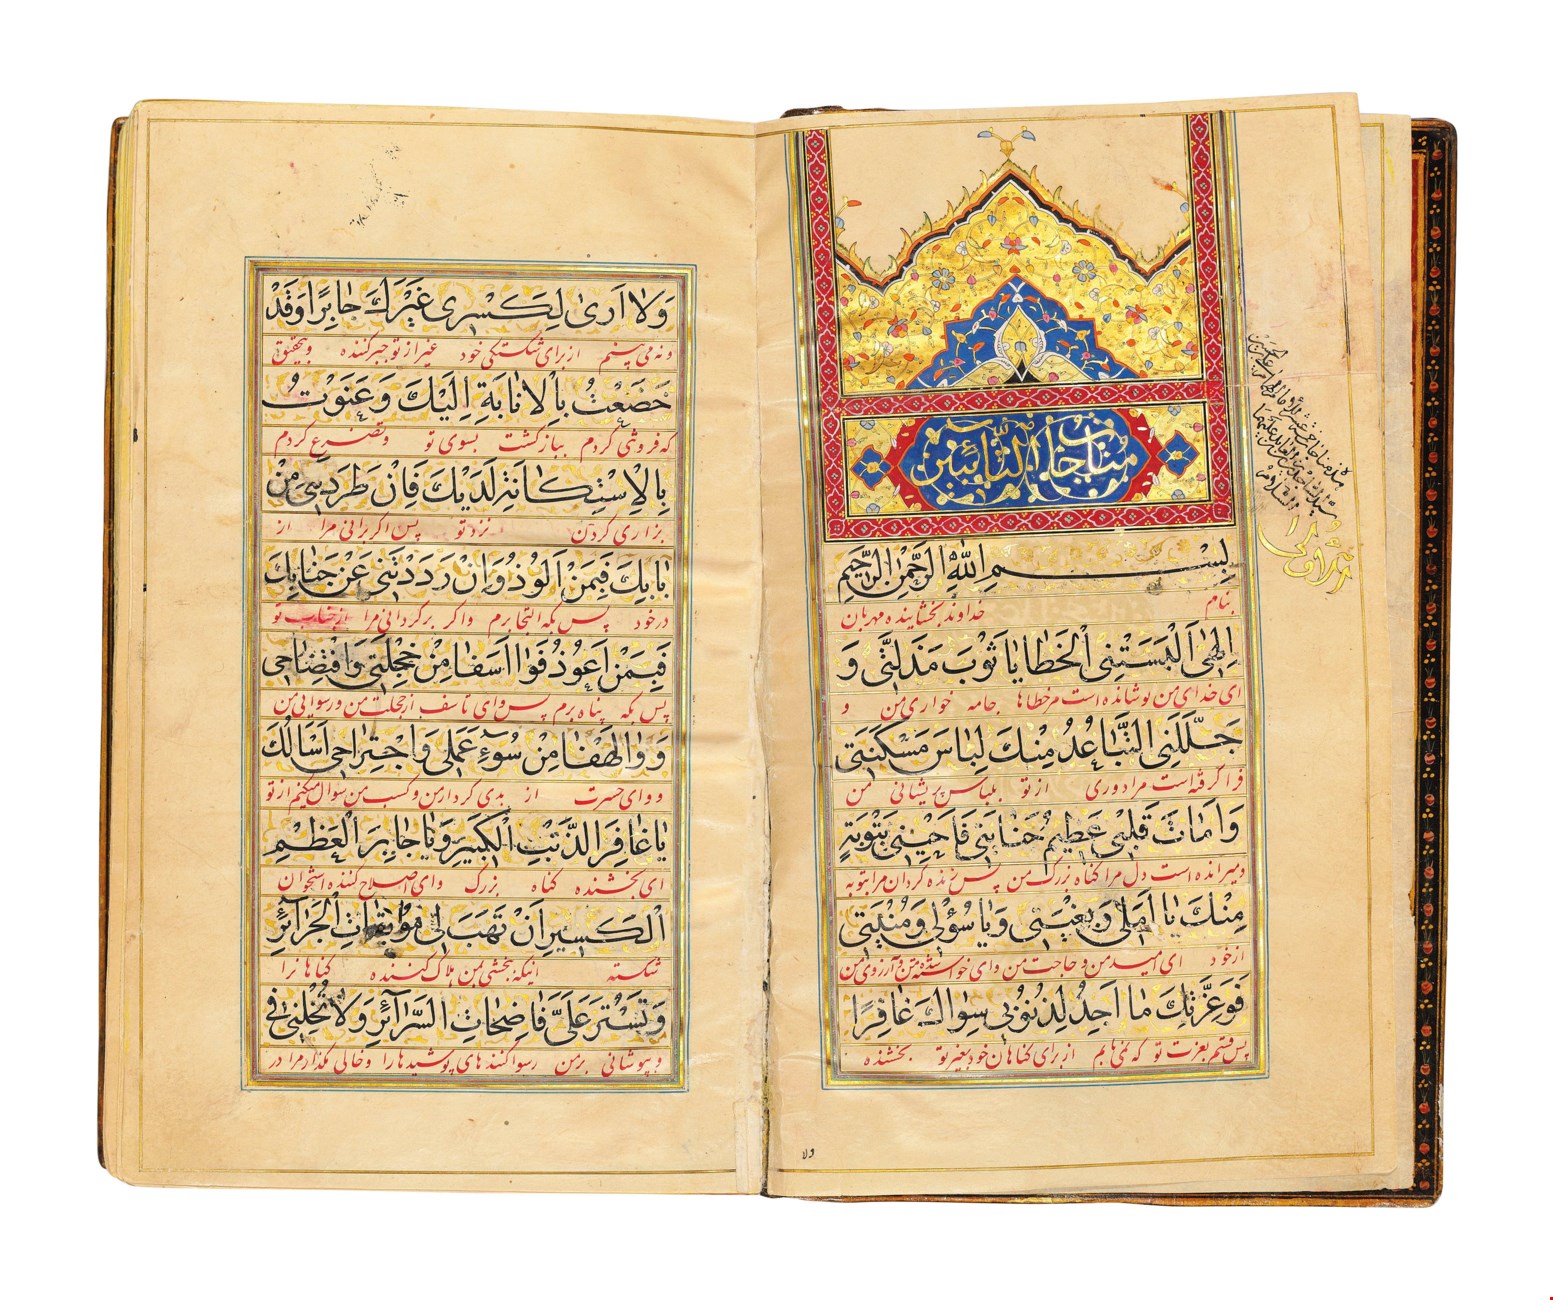 مناجات التائبین
بِسْمِ اللّٰهِ الرَّحْمٰنِ الرَّحِيْمِ
بنام خداوند بخشاینده مهربان
اِلٰهی اَلْبَسَتْنِی الْخَطایا ثَوْبَ مَذَلَّتی وَ
ای خدای من پوشانده است مرخطاها جامه خواری من و
جَلَّلَنِی التَّباعُدُ مِنْكَ لِباسَ مَسْكَنَتی
فرا گرفته است مرا دوری از تو بلباس پریشانی من
وَ اَماتَ قَلْبی عَظیمُ جِنایَتی فَاَحْیِنی بِتَوْبَةٍ
و میرانده است دل مرا کناه بزرک من پس زنده کردان مرا بتوبه
مِنْكَ یا اَمَلی وَ بُغْیَتی وَ یا سُؤْلی وَ مُنْیَتی
از خود ای امید من و حاجت من و ای خواسته من و آرزوی من
فَوَعِزَّتِكَ ما اَجِدُ لِذُنُوبی سِواكَ غافِرًا
پس قسم بعزت تو که نمی یابم از برای کناهان خود بغیر تو بخشنده
ولا
وَلا اَرىٰ لِكَسْری غَیْرَكَ جابِرًا وَقَدْ
و نه می بینم از برای شکستکی خود غیر از تو جبر کننده و بتحقیق
خَضَعْتُ بِالْاِنابَةِ اِلَیْكَ وَ عَنَوْتُ
که فروتنی کردم ببازکشت بسوی تو و تضرع کردم
بِالْاِسْتِكانَةِ لَدَیْكَ فَاِنْ طَرَدْتَنی مِنْ
بزاری کردن نزد تو پس اکر برانی مرا از
بابِكَ فَبِمَنْ اَلُوذُ وَ اِنْ رَدَدْتَنی عَنْ جَنابِكَ
در خود پس بکه التجا برم و اکر برکردانی مرا از جناب تو
فَبِمَنْ اَعُوذُ فَوا اَسَفا مِنْ خَجْلَتی وَ افْتِضاحی
پس بکه پناه برم پس وای تاسف از خجلت من و رسوایی من
وَ وا لَهْفا مِنْ سُوۤءِ عَمَلی وَ اجْتِراحی اَسْاَلُكَ
و وای حسرت از بدی کردار من و کسب من سوال میکنم از تو
یا غافِرَ الذَّنْبِ الْكَبیرِ وَ یا جابِرَ الْعَظْمِ
ای بخشنده کناه بزرک و ای اصلاح کننده استخوان
الْكَسیرِ اَنْ تَهَبَ لی مُوبِقاتِ الْجَرآئِرِ
شکسته اینکه ببخشی بمن هلاک کننده کناهانرا
وَ تَسْتُرَ عَلَیَّ فاضِحاتِ السَّرآئِرِ وَ لا تُخْلِنی فی
و بپوشانی بر من رسوا کننده های پوشیدها را و خالی مکذار مرا در